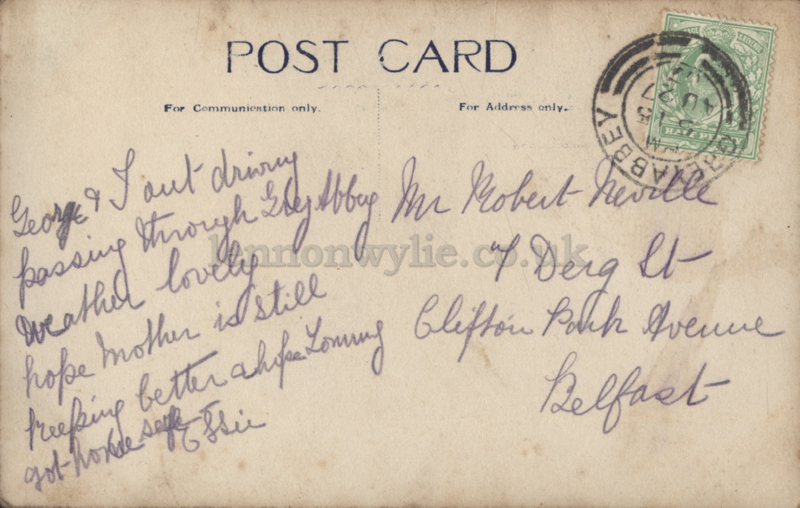 POST CARD
For Communication only.
For Address only.
HALF PE
GREYABBEY
George & I out driving
passing through Grey Abbey
Weather lovely
hope Mother is still
keeping better & hope Tommy
got home safe
Essie
Mr Robert Neville
7 Derg St
Clifton Park Avenue
Belfast
lennonwylie.co.uk